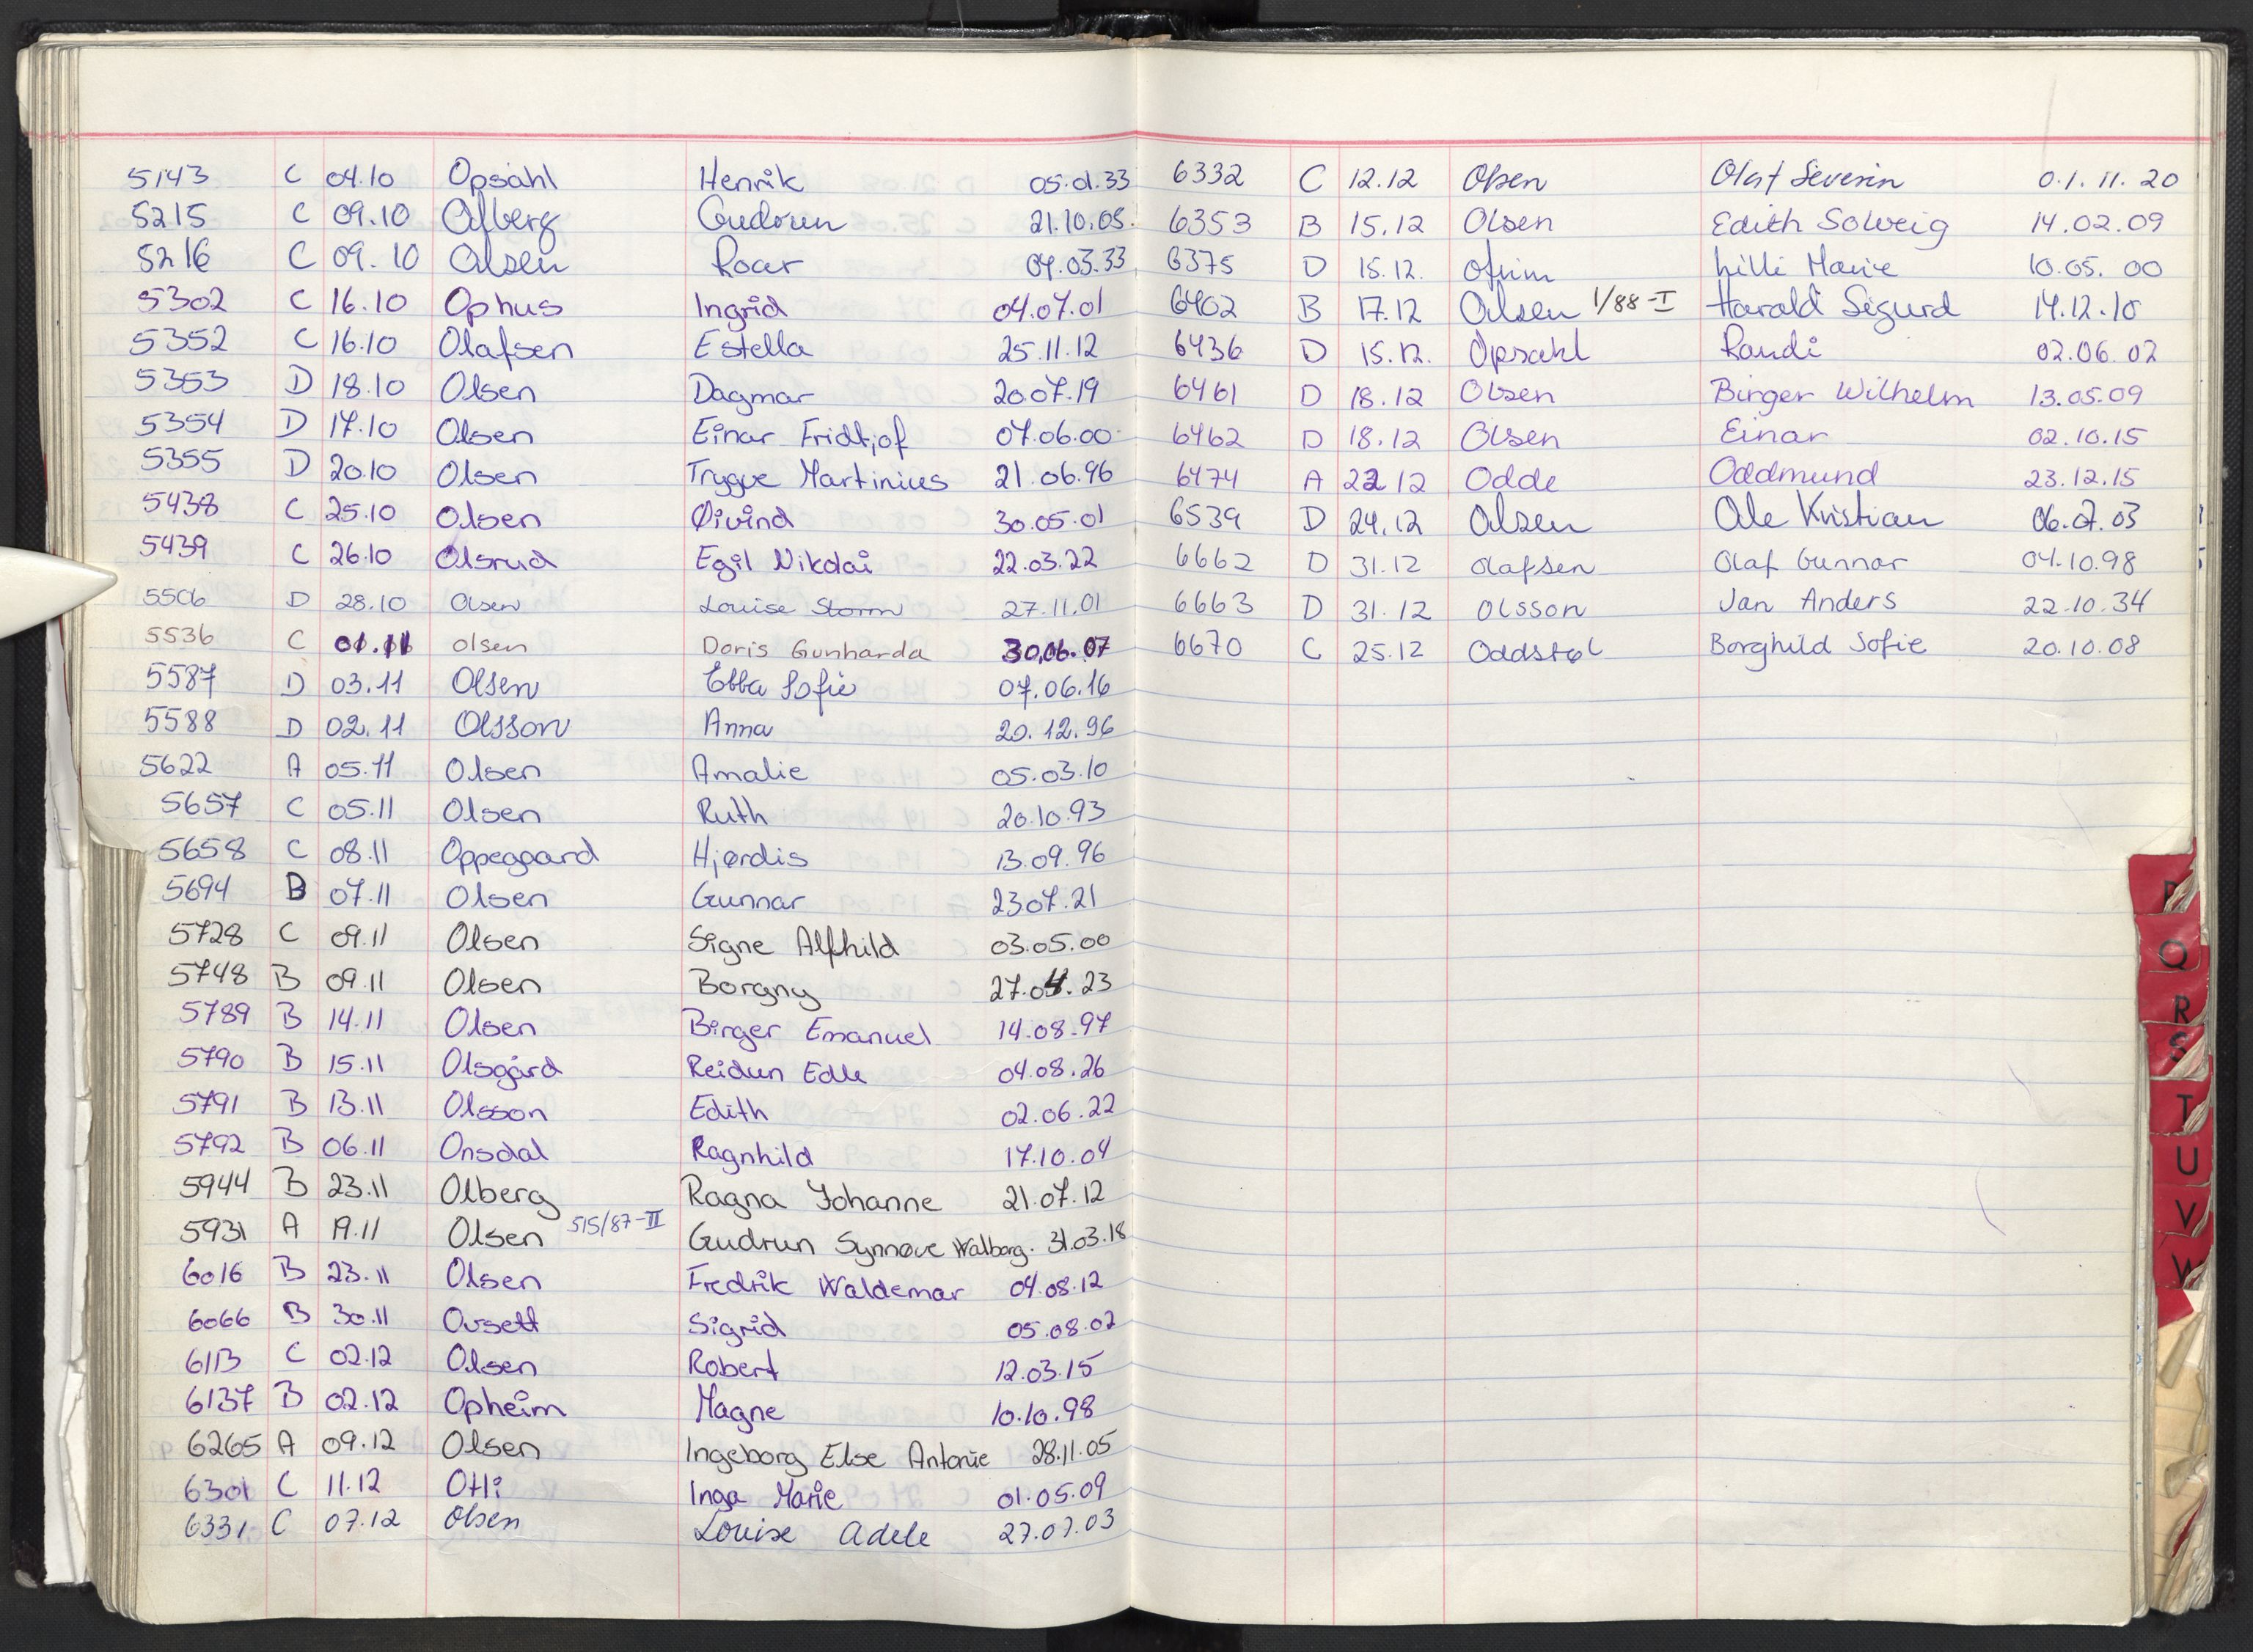 5143 C 04.10 Opsahl Henrik 05.01.33
5215 C 09.10 Olberg Gudrun 21.10.05.
5216 C 09.10 Olsen Roar 04.03.33
5302 C 16.10 Ophus Ingrid 04.07.01
5352 C 16.10 Olafsen Estella 25.11.12
5353 D 18.10 Olsen Dagmar 20.07.19
5354 D 17.10 Olsen Einar Fridtjof 07.06.00
5355 D 20.10 Olsen Trygve Martinius 21.06.96
5438 C 25.10 Olsen Øivind 30.05.01
5439 C 26.10 Olsrud Egil Nikolai 22.03.22
5506 D 28.10 Olsen Louise Storm 27.11.01
5536 C 01.11 olsen Doris Gunharda 30.06.07
5587 D 03.11 Olsen Ebba Sofie 07.06.16
5588 D 02.11 Olsson Anna 20.12.96
5622 A 05.11 Olsen Amalie 05.03.10
5657 C 05.11 Olsen Ruth 20.10.93
5658 C 08.11 Oppegaard Hjørdis 13.09.96
5694 B 07.11 Olsen Gunnar 23.07.21
5728 C 09.11 Olsen Signe Alfhild 03.05.00
5748 B 09.11 Olsen Borgny 27.04.23
5789 B 14.11 Olsen Birger Emanuel 14.08.97
5790 B 15.11 Olsgård Reidun Edle 04.08.26
5791 B 13.11 Olsson Edith 02.06.22
5792 B 06.11 Onsdal Ragnhild 17.10.04
5944 B 23.11 Olberg Ragna Johanne 21.07.12
5931 A 19.11 Olsen 515/87-II Gudrun Synnøve Walborg. 31.03.18
6016 B 23.11 Olsen Fredrik Waldemar 04.08.12
6066 B 30.11 Ovsett Sigrid 05.08.02
6113 C 02.12 Olsen Robert 12.03.15
6137 B 02.12 Opheim Magne 10.10.98
6265 A 09.12 Olsen Ingeborg Else Antonie 28.11.05
6301 C 11.12 Otli Inga Marie 01.05.09
6331 C 07.12 Olsen Louise Adele 27.07.03
6332 C 12.12 Olsen Olaf Severin 01.11.20
6353 B 15.12 Olsen Edith Solveig 14.02.09
6375 D 15.12. Lilli Marie 10.05.00
6402 B 17.12 Olsen 1/88-I Harald Sigurd 14.12.10
6436 D 15.12. Opsahl Randi 02.06.02
6461 D 18.12 Olsen Birger Wilhelm 13.05.09
6462 D 18.12 Olsen Einar 02.10.15
6474 A 22.12 Odde Oddmund 23.12.15
6539 D 24.12 Olsen Ole Kristian 06.07.03
6662 D 31.12 Olafsen Olaf Gunnar 04.10.98
6663 D 31.12 Olsson Jan Anders 22.10.34
6670 C 25.12 Oddstøl Borghild Sofie 20.10.08
P
Q
R
S
T
U
V
W